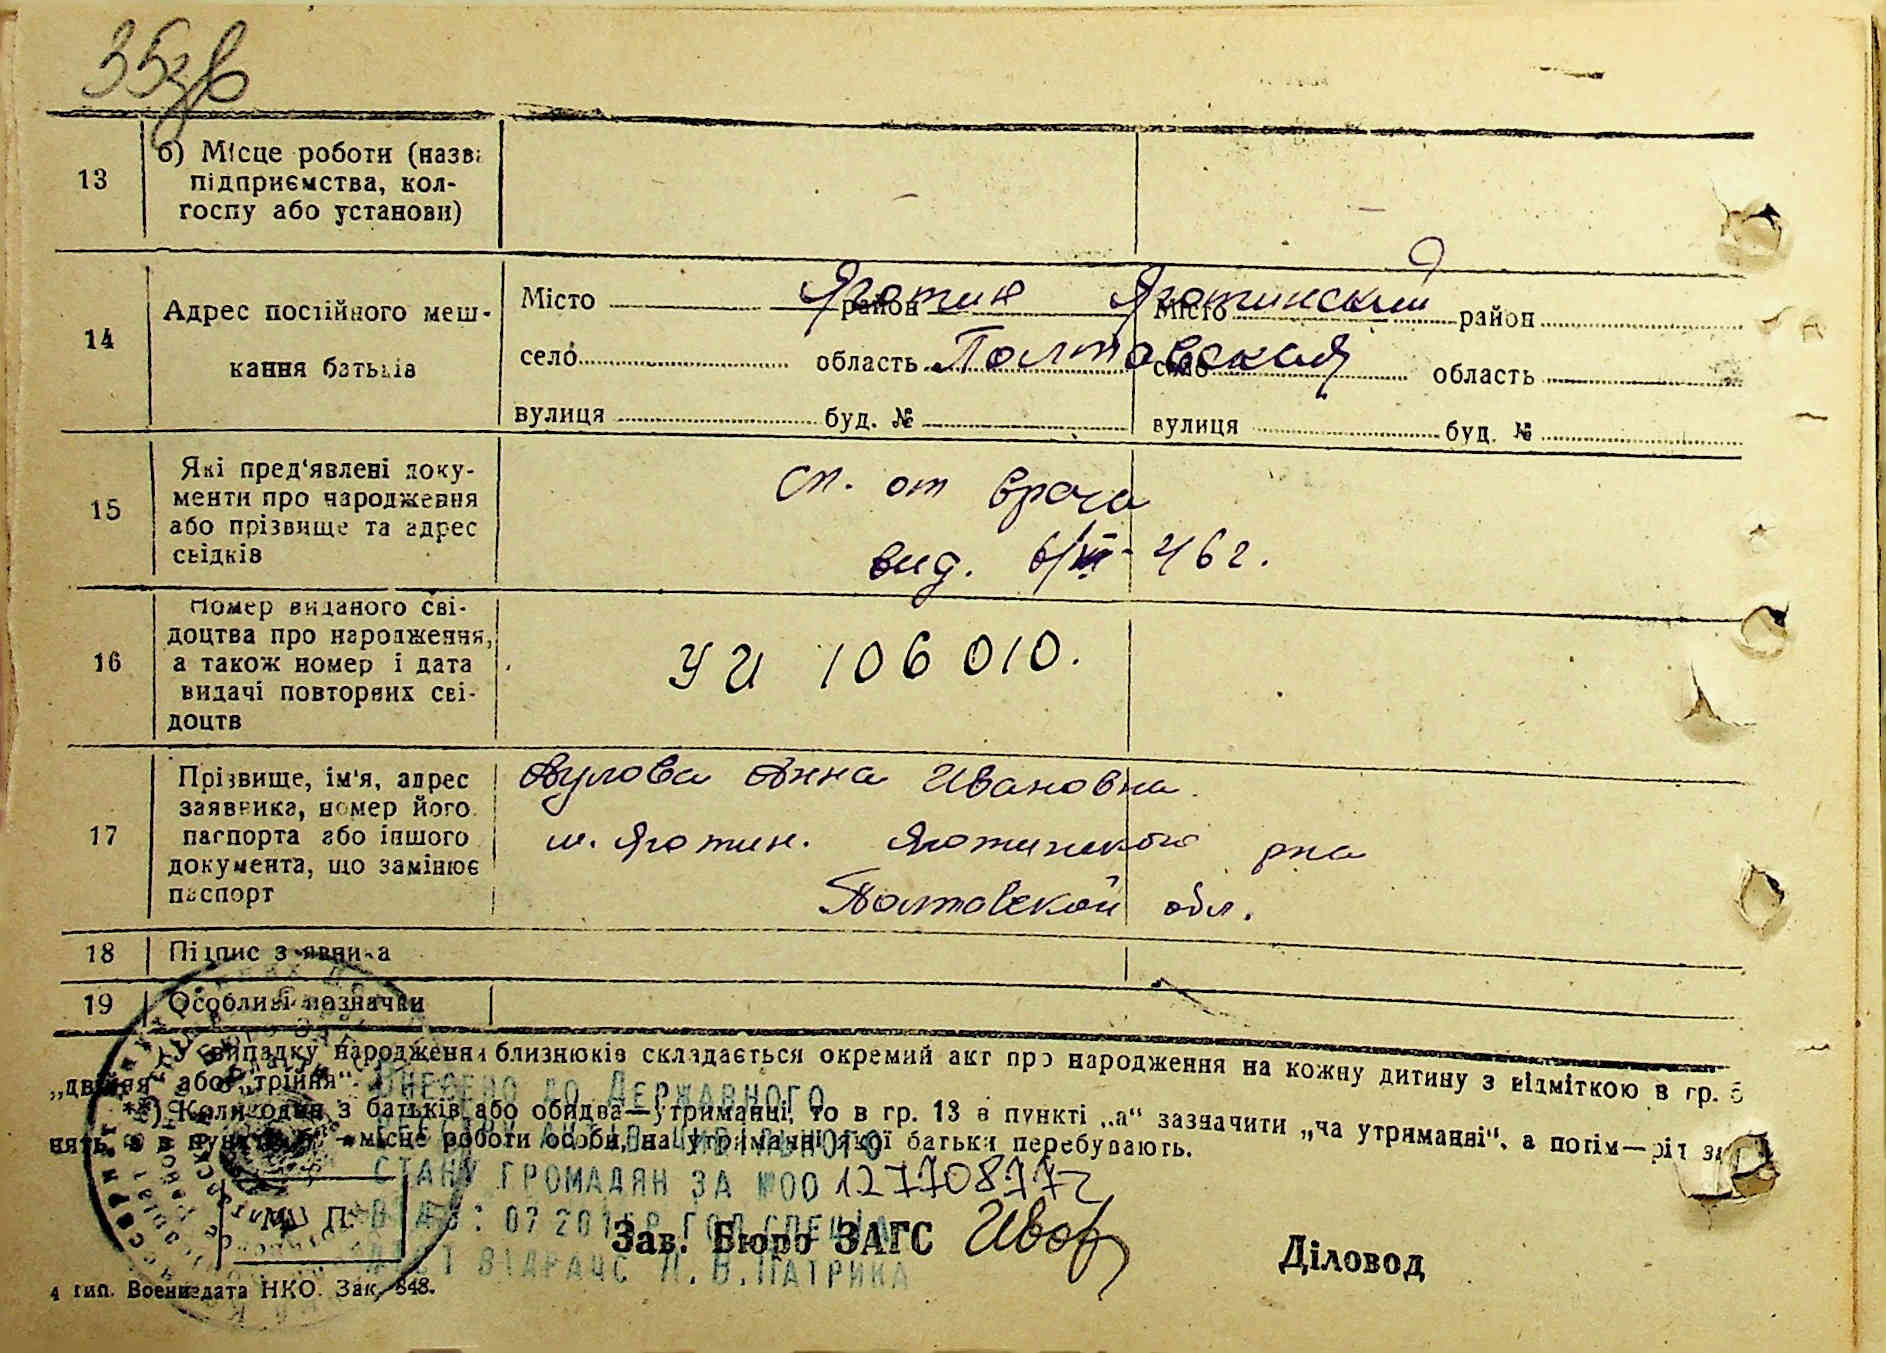 35зв
13
б) Місце роботи (назва
підприємства, кол-
госпу або установи)
14
Адрес постійного меш-
кання батьків
Місто район Яготин Яготинский Місто район
село область Полтовская село область
вулиця буд. № вулиця буд. №
15
Які пред'явлені доку-
менти про народження
або прізвище та адрес
свідків
сп. от врача
вид. 6/III-46г.
16
Номер виданого сві-
доцтва про народження,
а також номер і дата
видачі повторних сві-
доцтв
УИ 106010.
17
Прізвище, ім'я, адрес
заявника, номер його
паспорта або іншого
документа, що замінює
паспорт
Анна Ивановна
м. Яготин. Яготинского рна
Полтовской обл.
18 Підпис заявника
19 Особливі позначки
У випадку народження близнюків складається окремий акт про народження на кожну дитину з відміткою в гр. 5
„двійня“ або „трійня“.
**) Коли один з батьків або обидва—утриманці, то в гр. 13 в пункті „а“ зазначити „на утриманні“, а потім—рід за-
нять, а в пункті місце роботи особи, на утриманні якої батьки перебувають.
Внесено до Державного
реєстру актів цивільного
стану громадян за №00127708772
М. П.
Зав. Бюро ЗАГС
Діловод
4 тип. Воениздата НКО. Зак. 848.